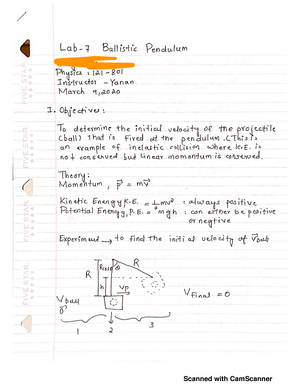 Lab-7 Ballistic Pendulum
Physics: 121-801
Instructor - Yanan
March 9, 2020
1. Objective:
To determine the initial velocity of the projectile
(ball) that is fired at the pendulum. (This is
an example of inelastic collision where K.E. is
not conserved but linear momentum is conserved.
Theory:
Momentum, P = mv
Kinetic Energy, K.E. = 1/2 mv² : always positive
Potential Energy, P.E. = mgh : can either be positive
or negtive
Experiment → to find the initial velocity of Vball
R
Rcosθ
θ
R
h
Vp
Vball
V Final = 0
1 2 3
FIVE STAR
FIVE STAR
FIVE STAR
FIVE STAR
Scanned with CamScanner